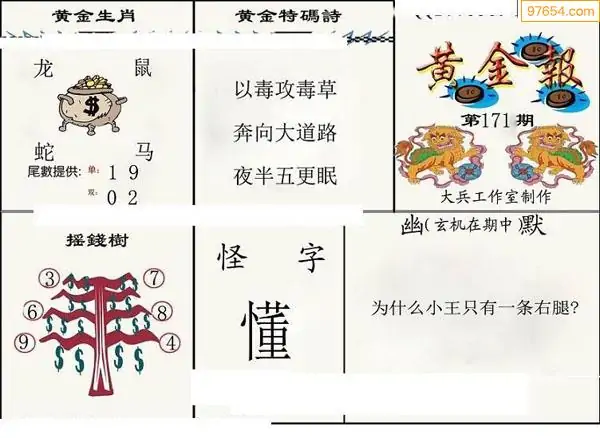 97654.com
黄金生肖
龙 鼠
$
蛇 马
尾數提供: 单: 1 9
双: 0 2
黄金特碼詩
以毒攻毒草
奔向大道路
夜半五更眠
黄金報
第171期
大兵工作室制作
摇錢樹
③ ⑦
⑥ ⑧
⑨ ④
怪 字
懂
幽(玄机在期中)默
为什么小王只有一条右腿?